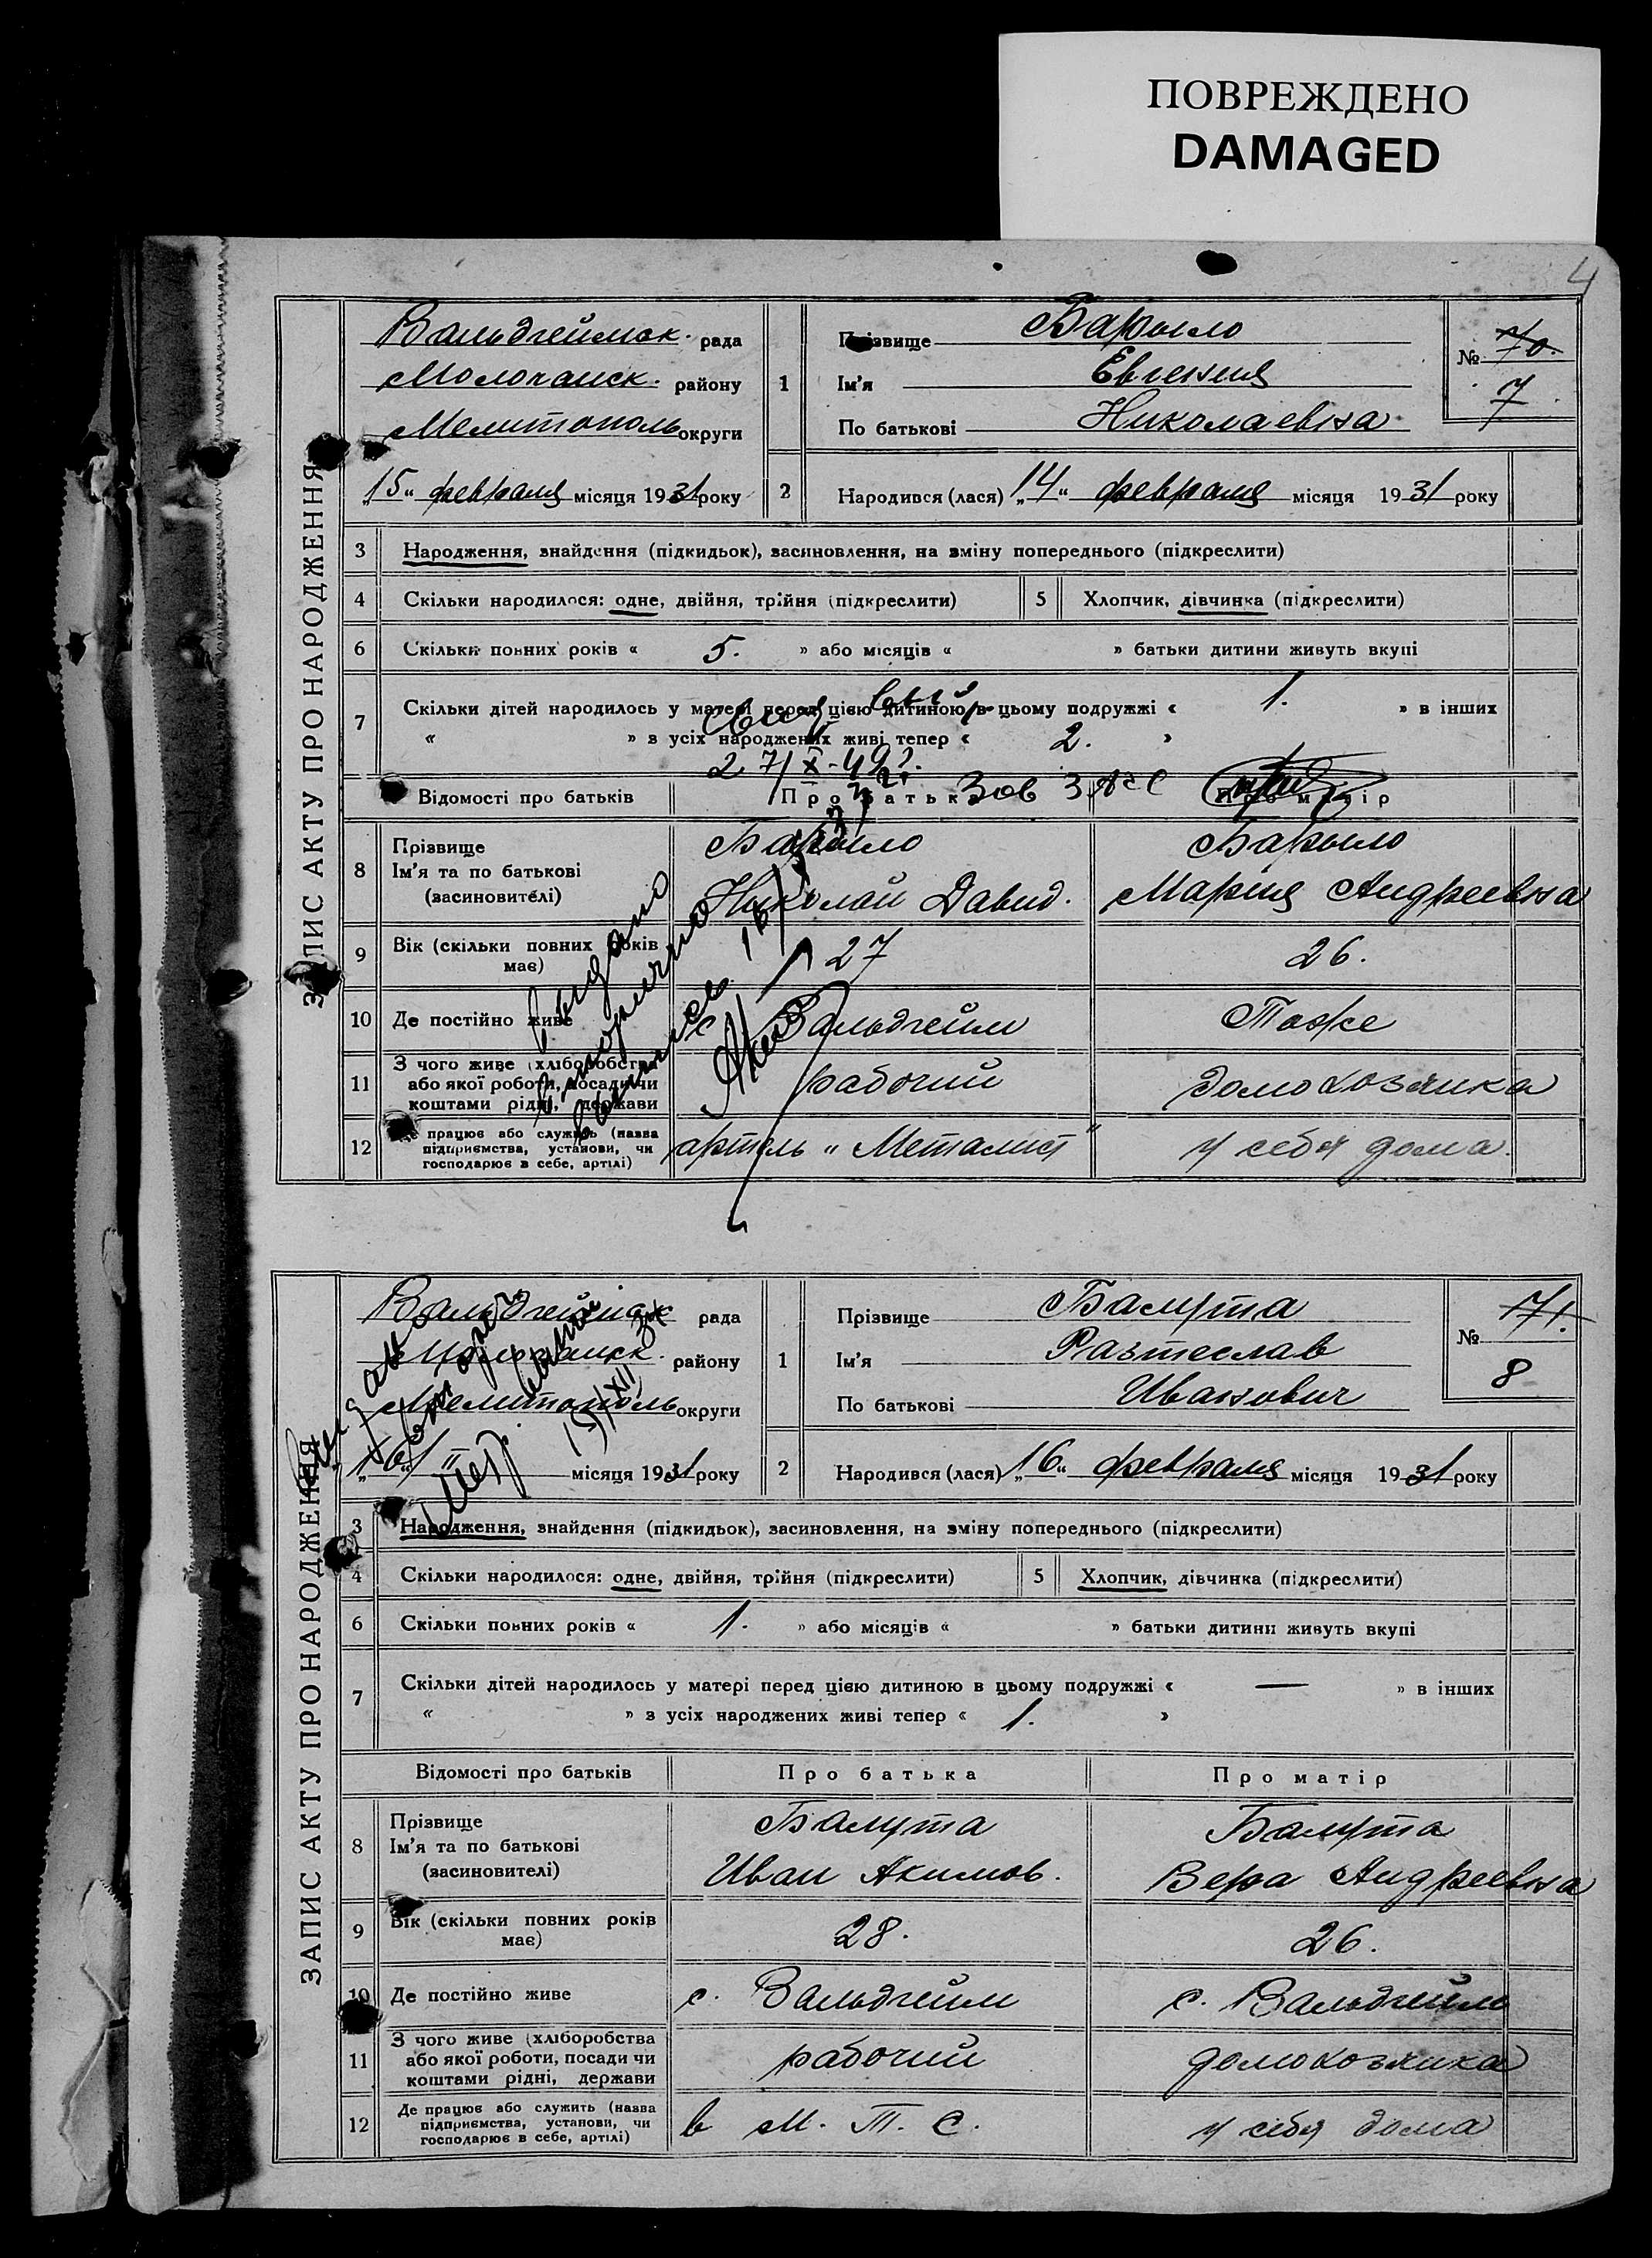 ПОВРЕЖДЕНО
DAMAGED
4
ЗАПИС АКТУ ПРО НАРОДЖЕННЯ
Вальдгеймск. рада
Молочанск. району
Мелитополь округи
„15“ февраля місяця 1931 року
1 Прізвище Барыло
Ім'я Евгения
По батькові Николаевна
№ 70.
7
2 Народився (лася) „14“ февраля місяця 1931 року
3 Народження, знайдення (підкидьок), засиновлення, на зміну попереднього (підкреслити)
4 Скільки народилося: одне, двійня, трійня (підкреслити) 5 Хлопчик, дівчинка (підкреслити)
6 Скільки повних років « 5. » або місяців « » батьки дитини живуть вкупі
7 Скільки дітей народилось у матері перед цією дитиною в цьому подружжі « 1. » в інших
« » з усіх народжених живі тепер « 2. »
27/X-49
Відомості про батьків Про батька Про матір
8 Прізвище Ім'я та по батькові (засновителі) Барыло Барыло
Николай Давид. Мария Андреевна
9 Вік (скільки повних років має) 27 26.
10 Де постійно живе с. Вальдгейм Тоже
11 З чого живе (хліборобства або якої роботи, посади чи коштами рідні, держави рабочий домохозяйка
12 Де працює або служить (назва підприємства, установи, чи господарює в себе, артілі) артель „Металист“ у себя дома.
выдано
вторично
ЗАПИС АКТУ ПРО НАРОДЖЕННЯ
Вальдгеймск рада
Молочанск. району
Мелитополь округи
„16“ " місяця 1931 року
1 Прізвище Балута
Ім'я Разтеслав
По батькові Иванович
№ 71.
8
2 Народився (лася) „16“ февраля місяця 1931 року
3 Народження, знайдення (підкидьок), засиновлення, на зміну попереднього (підкреслити)
4 Скільки народилося: одне, двійня, трійня (підкреслити) 5 Хлопчик, дівчинка (підкреслити)
6 Скільки повних років « 1. » або місяців « » батьки дитини живуть вкупі
7 Скільки дітей народилось у матері перед цією дитиною в цьому подружжі « — » в інших
« » з усіх народжених живі тепер « 1. »
Відомості про батьків Про батька Про матір
8 Прізвище Ім'я та по батькові (засиновителі) Балута Балута
Иван Акимов. Вера Андреевна
9 Вік (скільки повних років має) 28. 26.
10 Де постійно живе с. Вальдгейм с. Вальдгейм
11 З чого живе (хліборобства або якої роботи, посади чи коштами рідні, держави рабочий домохозяйка
12 Де працює або служить (назва підприємства, установи, чи господарює в себе, артілі) в М. Т. С. у себя дома